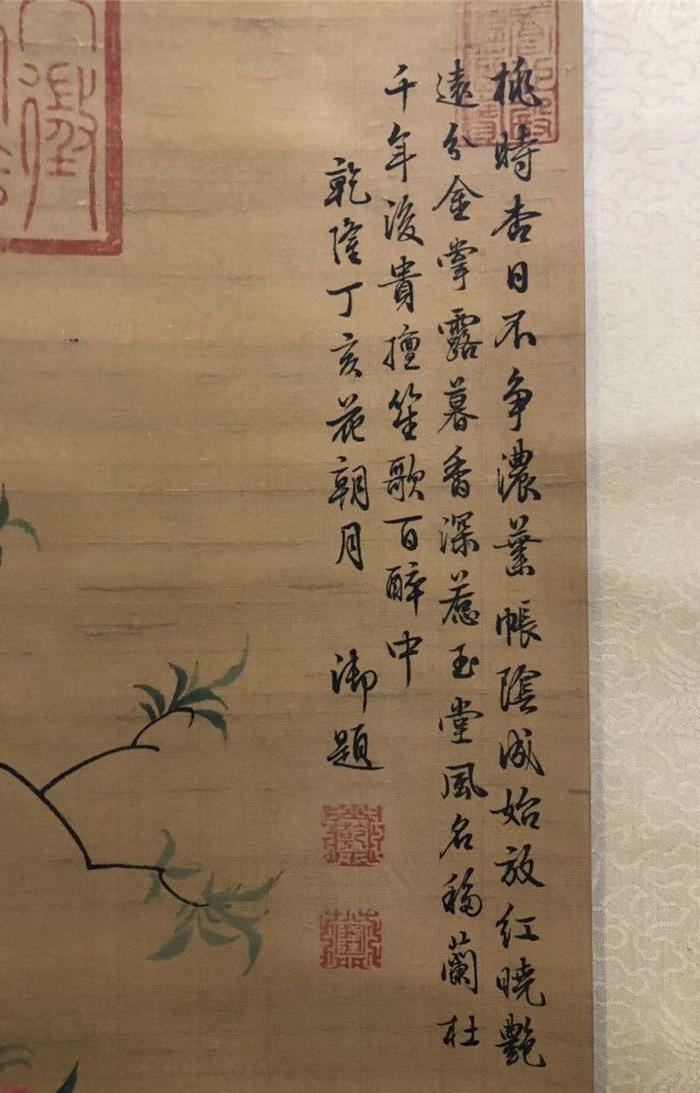 桃時杏日不争濃葉帳陰成始放紅曉艷
遠分金掌露暮香深惹玉堂風名移蘭杜
千年後貴擅笙歌百醉中
乾隆丁亥花朝月 御題